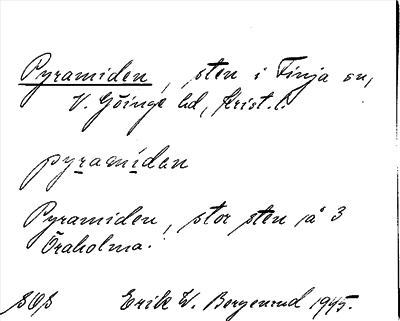 Pyramiden, sten i Finja sn,
V. Göinge hd, Krist. l.
pyramidan
Pyramiden, stor sten på 3
Öraholma.
SOS Erik W. Bergenrud 1945.